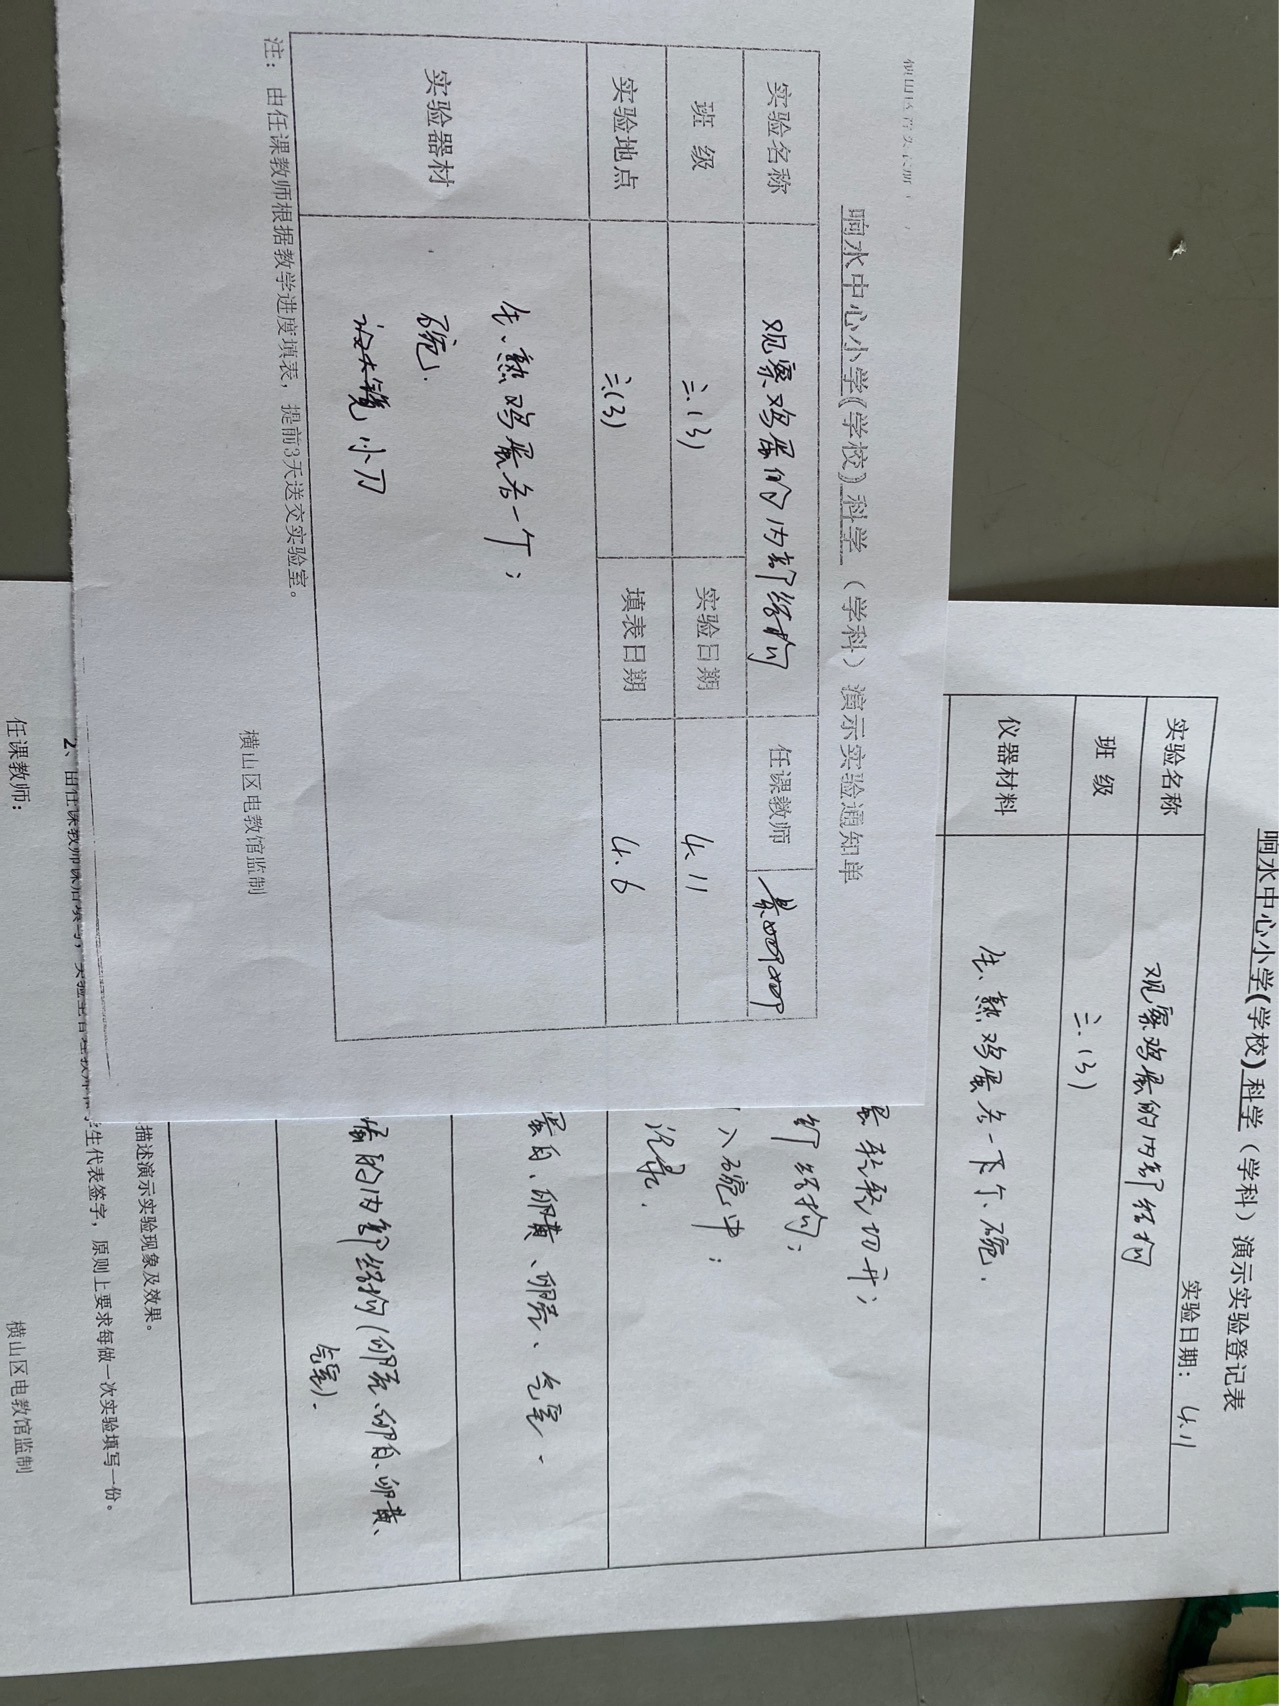 响水中心小学(学校)科学（学科）演示实验通知单
实验名称 观察鸡蛋的内部结构 任课教师
班 级 三.(3) 实验日期 4.11
实验地点 三.(3) 填表日期 4.6
实验器材
生、熟鸡蛋各一个；
碗.
小刀
注：由任课教师根据教学进度填表，提前3天送交实验室。
横山区电教馆监制
响水中心小学(学校)科学（学科）演示实验登记表
实验日期： 4.11
实验名称 观察鸡蛋的内部结构
班 级 三.(3)
仪器材料 生、熟鸡蛋各一下个、碗.
蛋轻轻切开；
部结构；
入碗中；
记录.
蛋白、卵黄、卵壳、气室.
的内部结构(卵壳、卵白、卵黄、
气室).
描述演示实验现象及效果。
2、由任课教师课后填写，
学生代表签字，原则上要求每做一次实验填写一份。
任课教师：
横山区电教馆监制